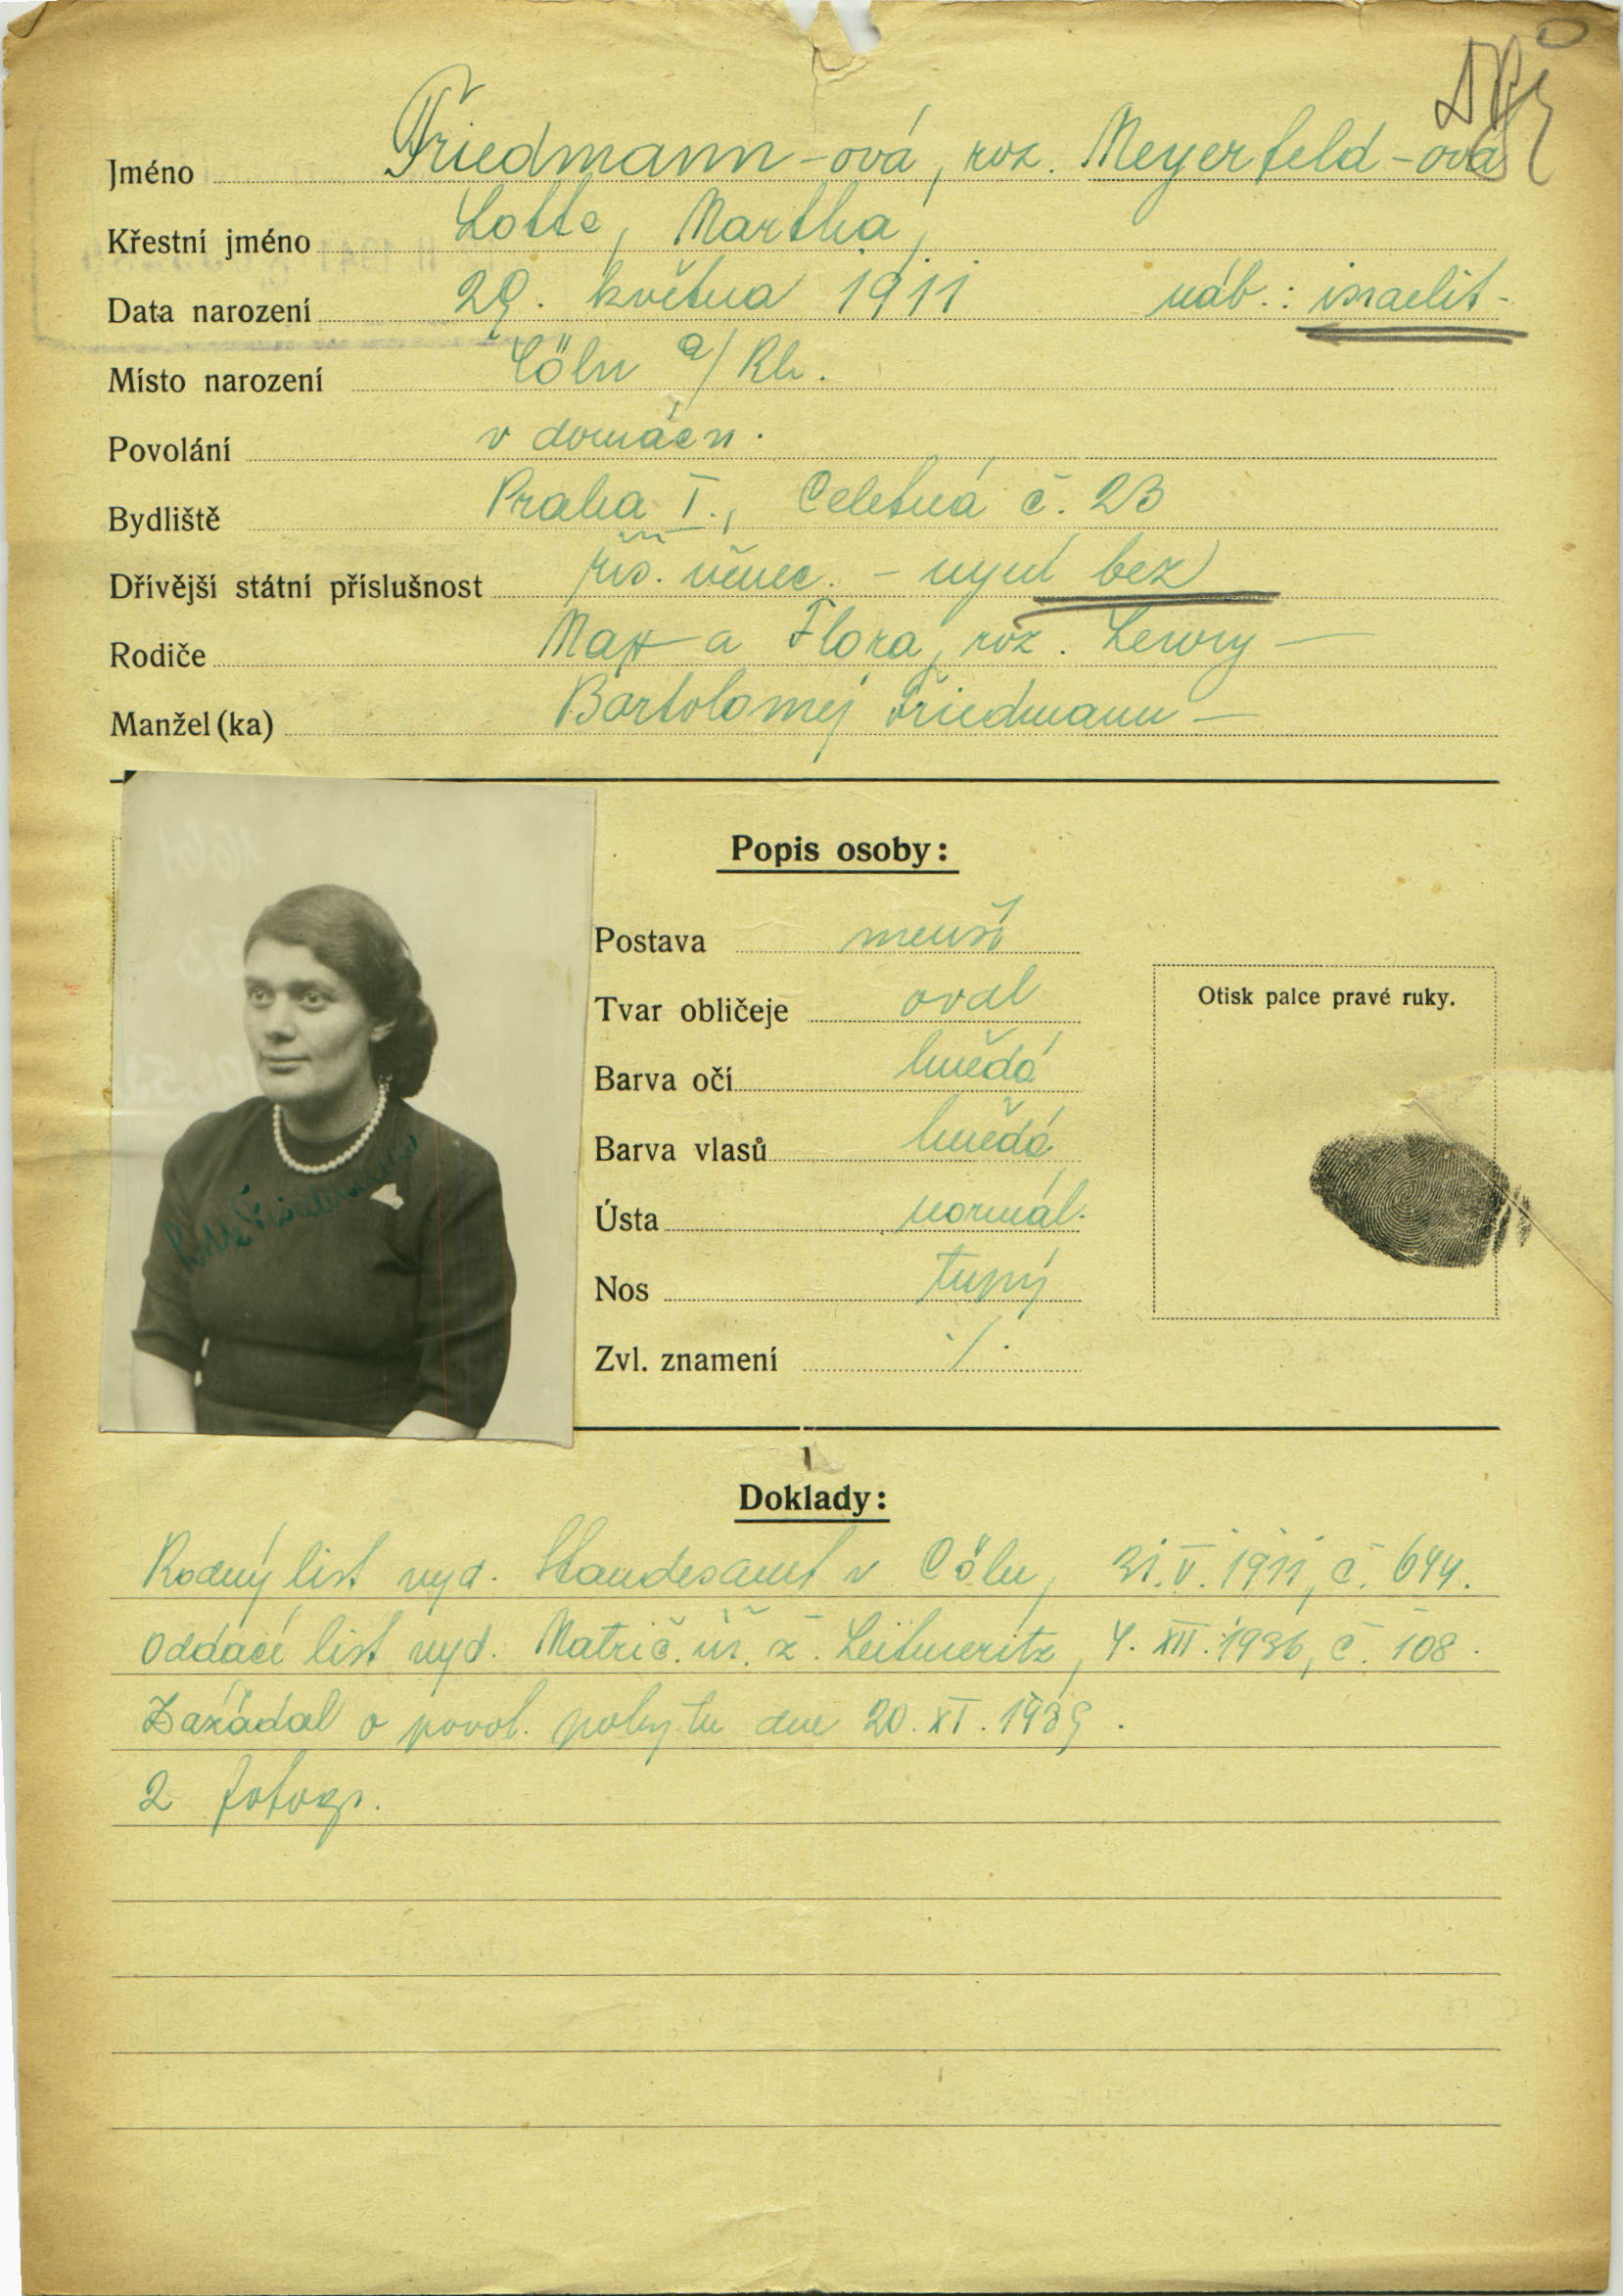 Jméno Friedmann-ová, roz. Meyerfeld-ová
Křestní jméno Lotte, Martha,
Data narození 29. května 1911 náb.: israelit-
Místo narození Cöln a/Rh.
Povolání v domácn.
Bydliště Praha I., Celetná č. 23
Dřívější státní příslušnost říš. němec. - nyní bez
Rodiče Max a Flora, roz. Lewy -
Manžel(ka) Bartolomej Friedmann -
Popis osoby:
Postava menší
Tvar obličeje oval
Barva očí hnědá
Barva vlasů hnědá
Ústa normál.
Nos tupý
Zvl. znamení ./.
Otisk palce pravé ruky.
Lotte Friedmannová
Doklady:
Rodný list vyd. Standesamt v Cöln, 31.V.1911, č. 644.
Oddací list vyd. Matrič. úř. ž. Leitmeritz, 4. XII. 1936, č. 108.
Zažádal o povol. pobytu dne 20. XI. 1939.
2 fotogr.